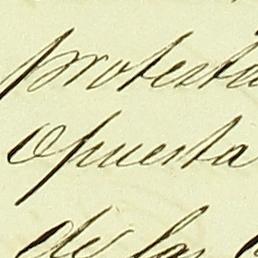 protesta
Opuesta
de las